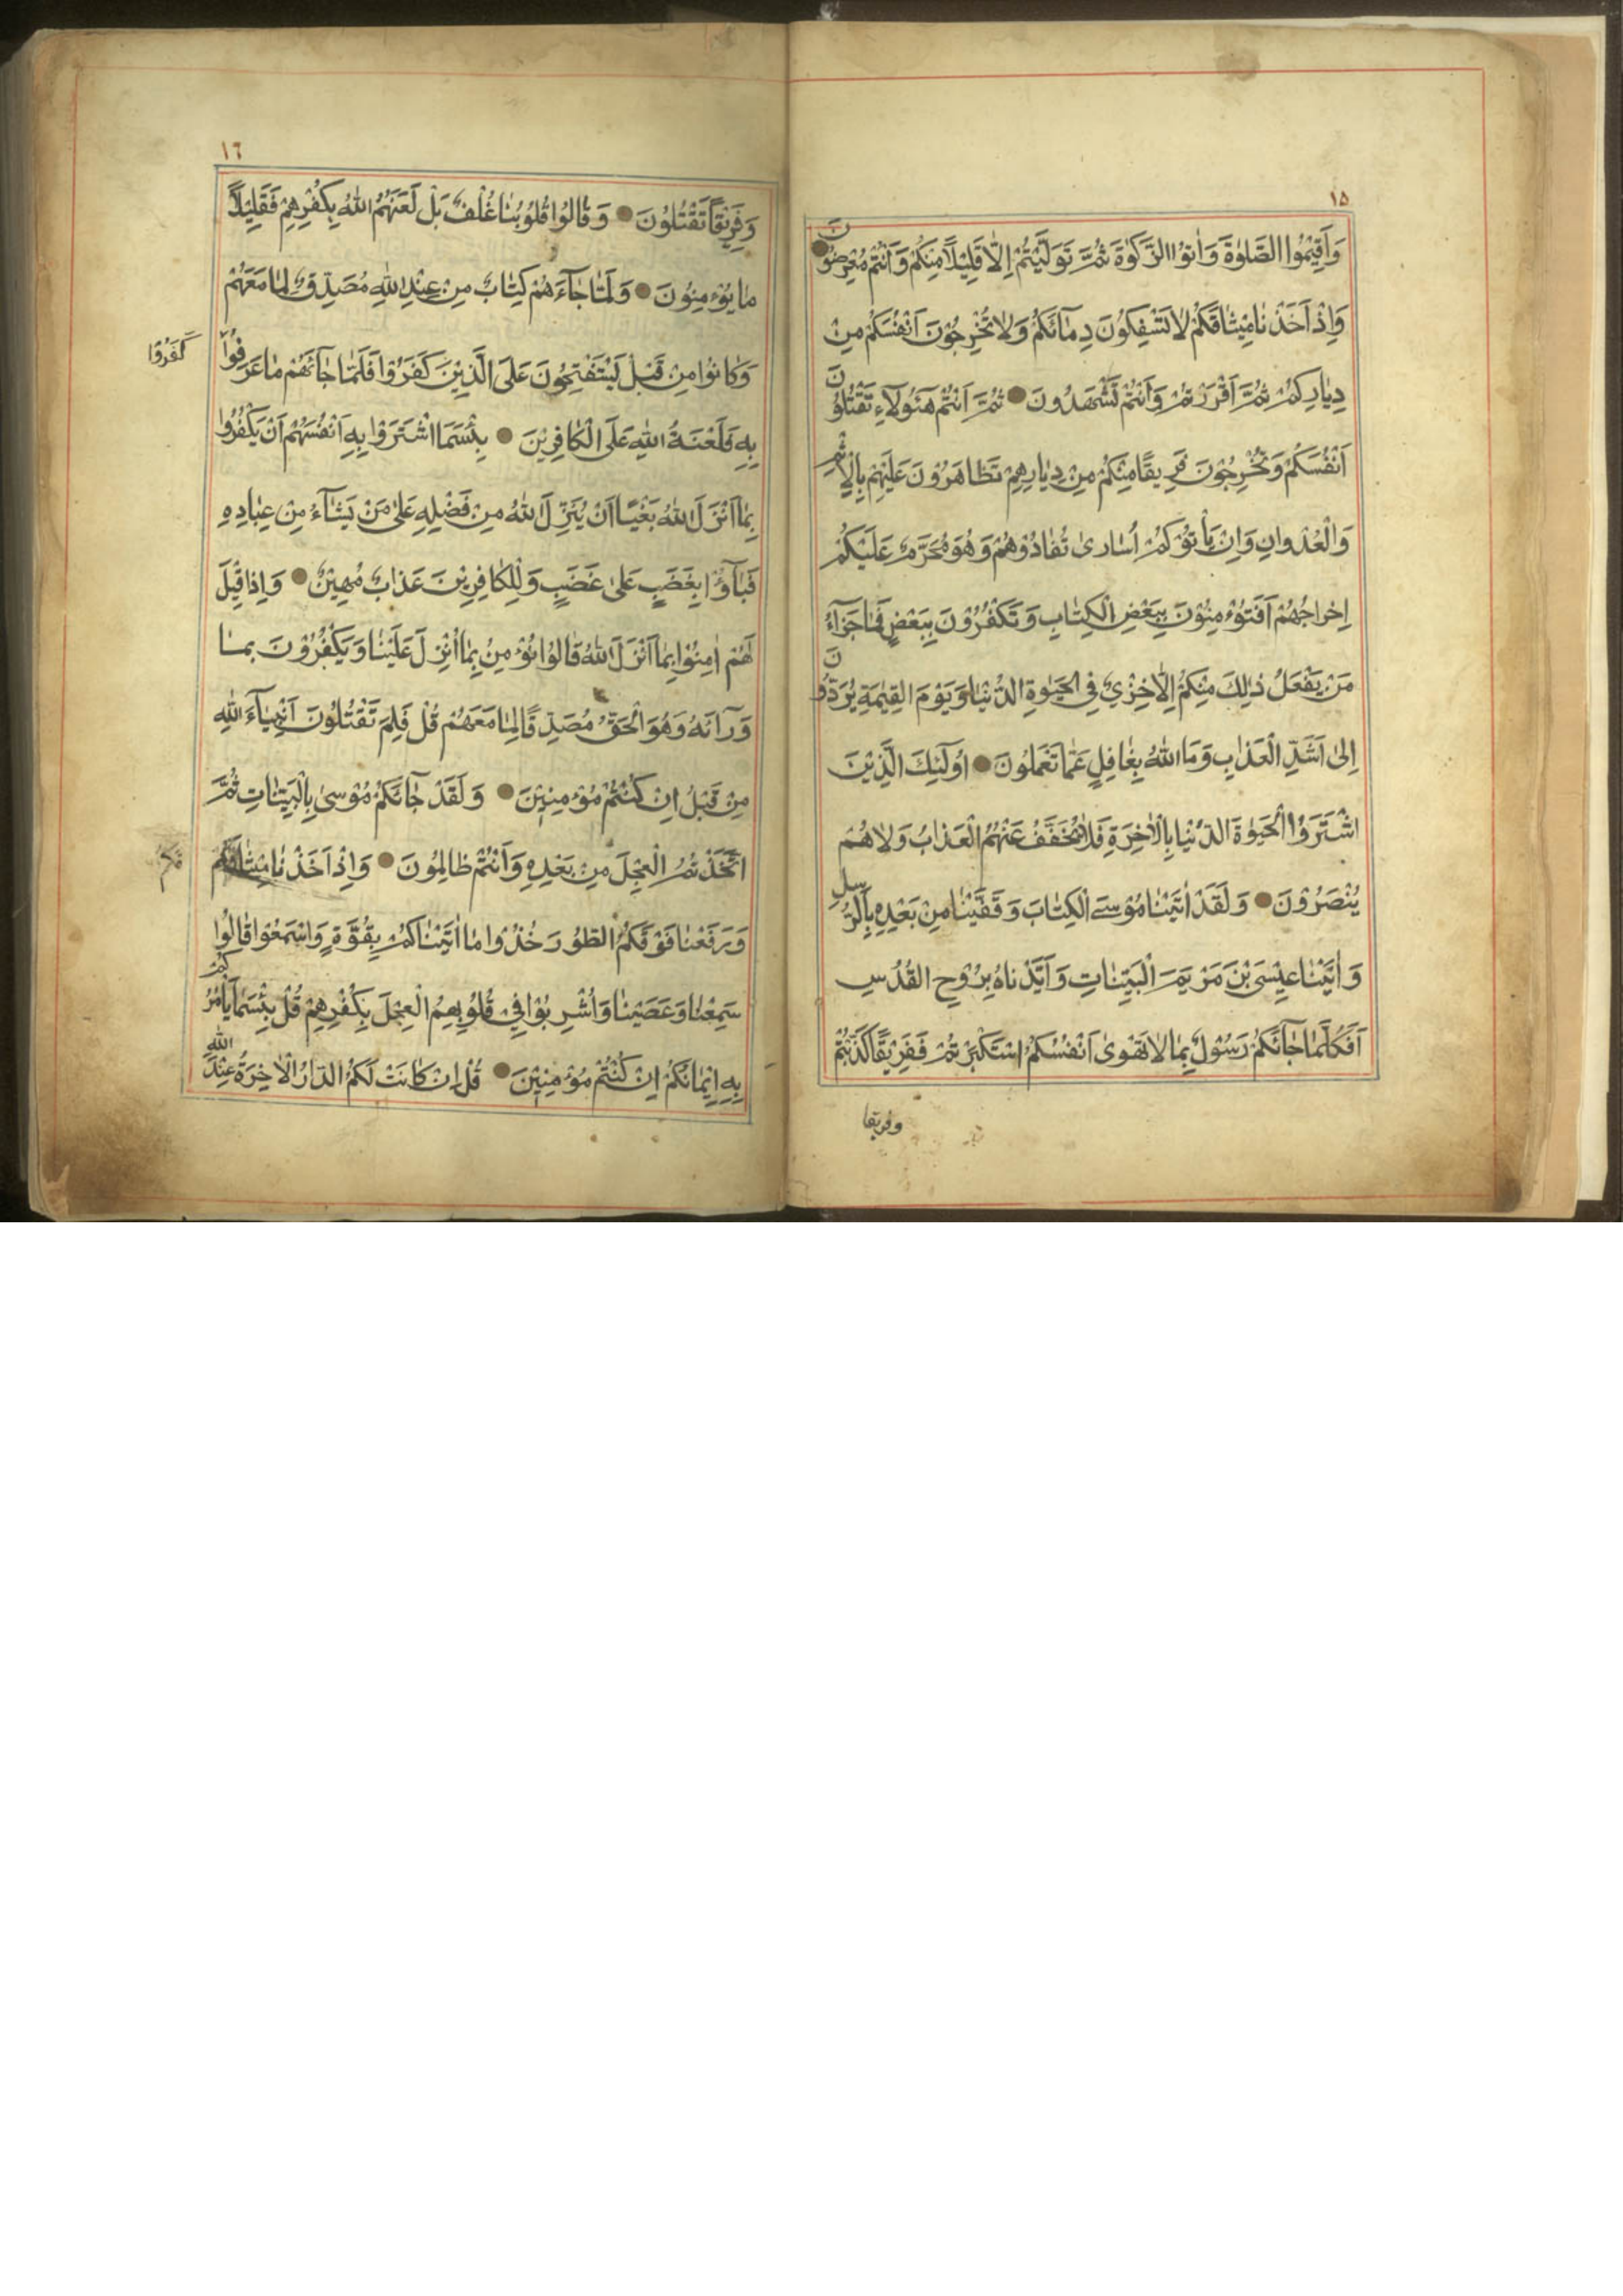 ١٥
وَاَقِيْمُوا الصَّلٰوةَ وَاٰتوُا الزَّكٰوةَ ثُمَّ تَوَلَّيْتُمْ اِلّا قَلِيْلاً مِنْكُمْ وَاَنْتُمْ مُعْرِضُونَ
وَاِذْ اَخَذْنٰا مِيْثٰاقَكُمْ لاٰ تَسْفِكُونَ دِمٰآئَكُمْ وَلاٰ تُخْرِجُوْنَ اَنْفُسَكُمْ مِنْ
دِيٰارِكُمْ ثُمَّ اَقْرَرْتُمْ وَاَنْتُمْ تَشْهَدُونَ ثُمَّ اَنْتُمْ هٰؤُلآءِ تَقْتُلُوْنَ
اَنْفُسَكُمْ وَتُخْرِجُوْنَ فَرِيقًا مِنْكُمْ مِنْ دِيٰارِهِمْ تَظٰاهَرُوْنَ عَلَيْهِمْ بِالْاِثْمِ
وَالْعُدْوٰانِ وَاِنْ يَأْتُوْكُمْ اُسٰارىٰ تُفٰادُوْهُمْ وَهُوَ مُحَرَّمٌ عَلَيْكُمْ
اِخْرٰاجُهُمْ اَفَتُؤْمِنُوْنَ بِبَعْضِ الْكِتٰابِ وَتَكْفُرُوْنَ بِبَعْضٍ فَمٰا جَزٰآءُ
مَنْ يَفْعَلُ ذٰلِكَ مِنْكُمْ اِلّاٰ خِزْيٌ فِي الْحَيٰوةِ الدُّنْيٰا وَيَوْمَ الْقِيٰمَةِ يُرَدُّوْنَ
اِلىٰ اَشَدِّ الْعَذٰابِ وَمَا اللّٰهُ بِغٰافِلٍ عَمّٰا تَعْمَلُونَ اُولٰٓئِكَ الَّذِيْنَ
اشْتَرَوُا الْحَيٰوةَ الدُّنْيٰا بِالْاٰخِرَةِ فَلاٰ يُخَفَّفُ عَنْهُمُ الْعَذٰابُ وَلاٰ هُمْ
يُنْصَرُوْنَ وَلَقَدْ اٰتَيْنٰا مُوْسَى الْكِتٰابَ وَقَفَّيْنٰا مِنْ بَعْدِهِ بِالرُّسُلِ
وَاٰتَيْنٰا عِيْسَى بْنَ مَرْيَمَ الْبَيِّنٰاتِ وَاَيَّدْنٰاهُ بِرُوْحِ الْقُدُسِ
اَفَكُلَّمٰا جٰآئَكُمْ رَسُوْلٌ بِمٰا لاٰ تَهْوىٰ اَنْفُسُكُمُ اسْتَكْبَرْتُمْ فَفَرِيْقًا كَذَّبْتُمْ
وفريقا
١٦
وَفَرِيْقًا تَقْتُلُوْنَ وَقٰالُوْا قُلُوْبُنٰا غُلْفٌ بَلْ لَعَنَهُمُ اللّٰهُ بِكُفْرِهِمْ فَقَلِيْلاً
مٰا يُؤْمِنُوْنَ وَلَمّٰا جٰآءَهُمْ كِتٰابٌ مِنْ عِنْدِ اللّٰهِ مُصَدِّقٌ لِمٰا مَعَهُمْ
وَكٰانُوْا مِنْ قَبْلُ يَسْتَفْتِحُوْنَ عَلَى الَّذِيْنَ كَفَرُوْا فَلَمّٰا جٰآئَهُمْ مٰا عَرَفُوْا
كَفَرُوْا
بِهِ فَلَعْنَةُ اللّٰهِ عَلَى الْكٰافِرِيْنَ بِئْسَمَا اشْتَرَوْا بِهِ اَنْفُسَهُمْ اَنْ يَكْفُرُوْا
بِمٰا اَنْزَلَ اللّٰهُ بَغْيًا اَنْ يُنَزِّلَ اللّٰهُ مِنْ فَضْلِهِ عَلىٰ مَنْ يَشٰآءُ مِنْ عِبٰادِهِ
فَبٰآؤُا بِغَضَبٍ عَلىٰ غَضَبٍ وَلِلْكٰافِرِيْنَ عَذٰابٌ مُهِيْنٌ وَاِذٰا قِيْلَ
لَهُمْ اٰمِنُوْا بِمٰا اَنْزَلَ اللّٰهُ قٰالُوْا نُؤْمِنُ بِمٰا اُنْزِلَ عَلَيْنٰا وَيَكْفُرُوْنَ بِمٰا
وَرٰآئَهُ وَهُوَ الْحَقُّ مُصَدِّقًا لِمٰا مَعَهُمْ قُلْ فَلِمَ تَقْتُلُوْنَ اَنْبِيٰآءَ اللّٰهِ
مِنْ قَبْلُ اِنْ كُنْتُمْ مُؤْمِنِيْنَ وَلَقَدْ جٰآئَكُمْ مُوْسىٰ بِالْبَيِّنٰاتِ ثُمَّ
اتَّخَذْتُمُ الْعِجْلَ مِنْ بَعْدِهِ وَاَنْتُمْ ظٰالِمُوْنَ وَاِذْ اَخَذْنٰا مِيْثٰاقَكُمْ
وَرَفَعْنٰا فَوْقَكُمُ الطُّوْرَ خُذُوْا مٰا اٰتَيْنٰاكُمْ بِقُوَّةٍ وَاسْمَعُوْا قٰالُوْا
سَمِعْنٰا وَعَصَيْنٰا وَاُشْرِبُوْا فِيْ قُلُوْبِهِمُ الْعِجْلَ بِكُفْرِهِمْ قُلْ بِئْسَمٰا يَأْمُرُكُمْ
بِهِ اِيْمٰانُكُمْ اِنْ كُنْتُمْ مُؤْمِنِيْنَ قُلْ اِنْ كٰانَتْ لَكُمُ الدّٰارُ الْاٰخِرَةُ عِنْدَ اللّٰهِ